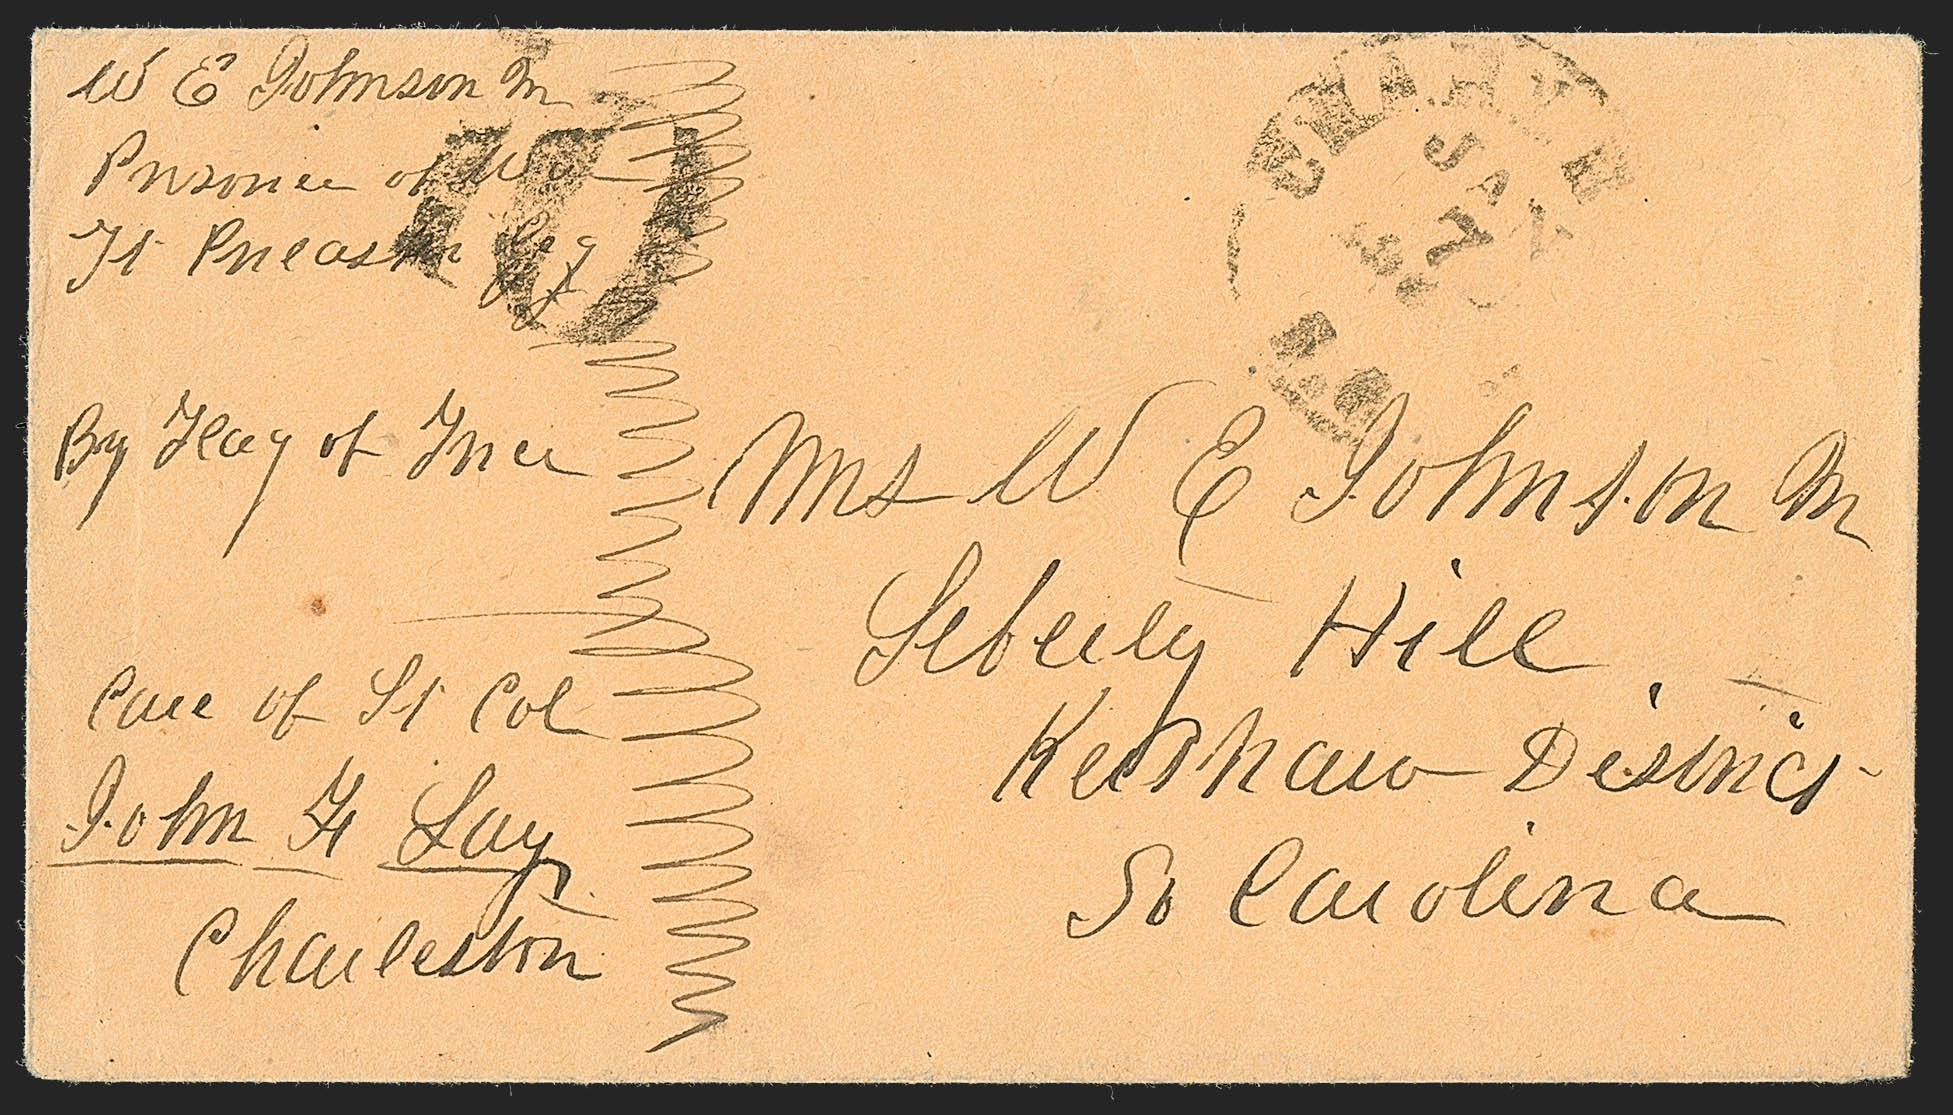 W E Johnson Jr
Prisoner of War
Ft Pulaski Ga
10
By Flag of Truce
Care of Lt Col
John F Lay
Charleston
JAN
7
Mrs W E Johnson Jr
Liberty Hill
Kershaw District
So Carolina